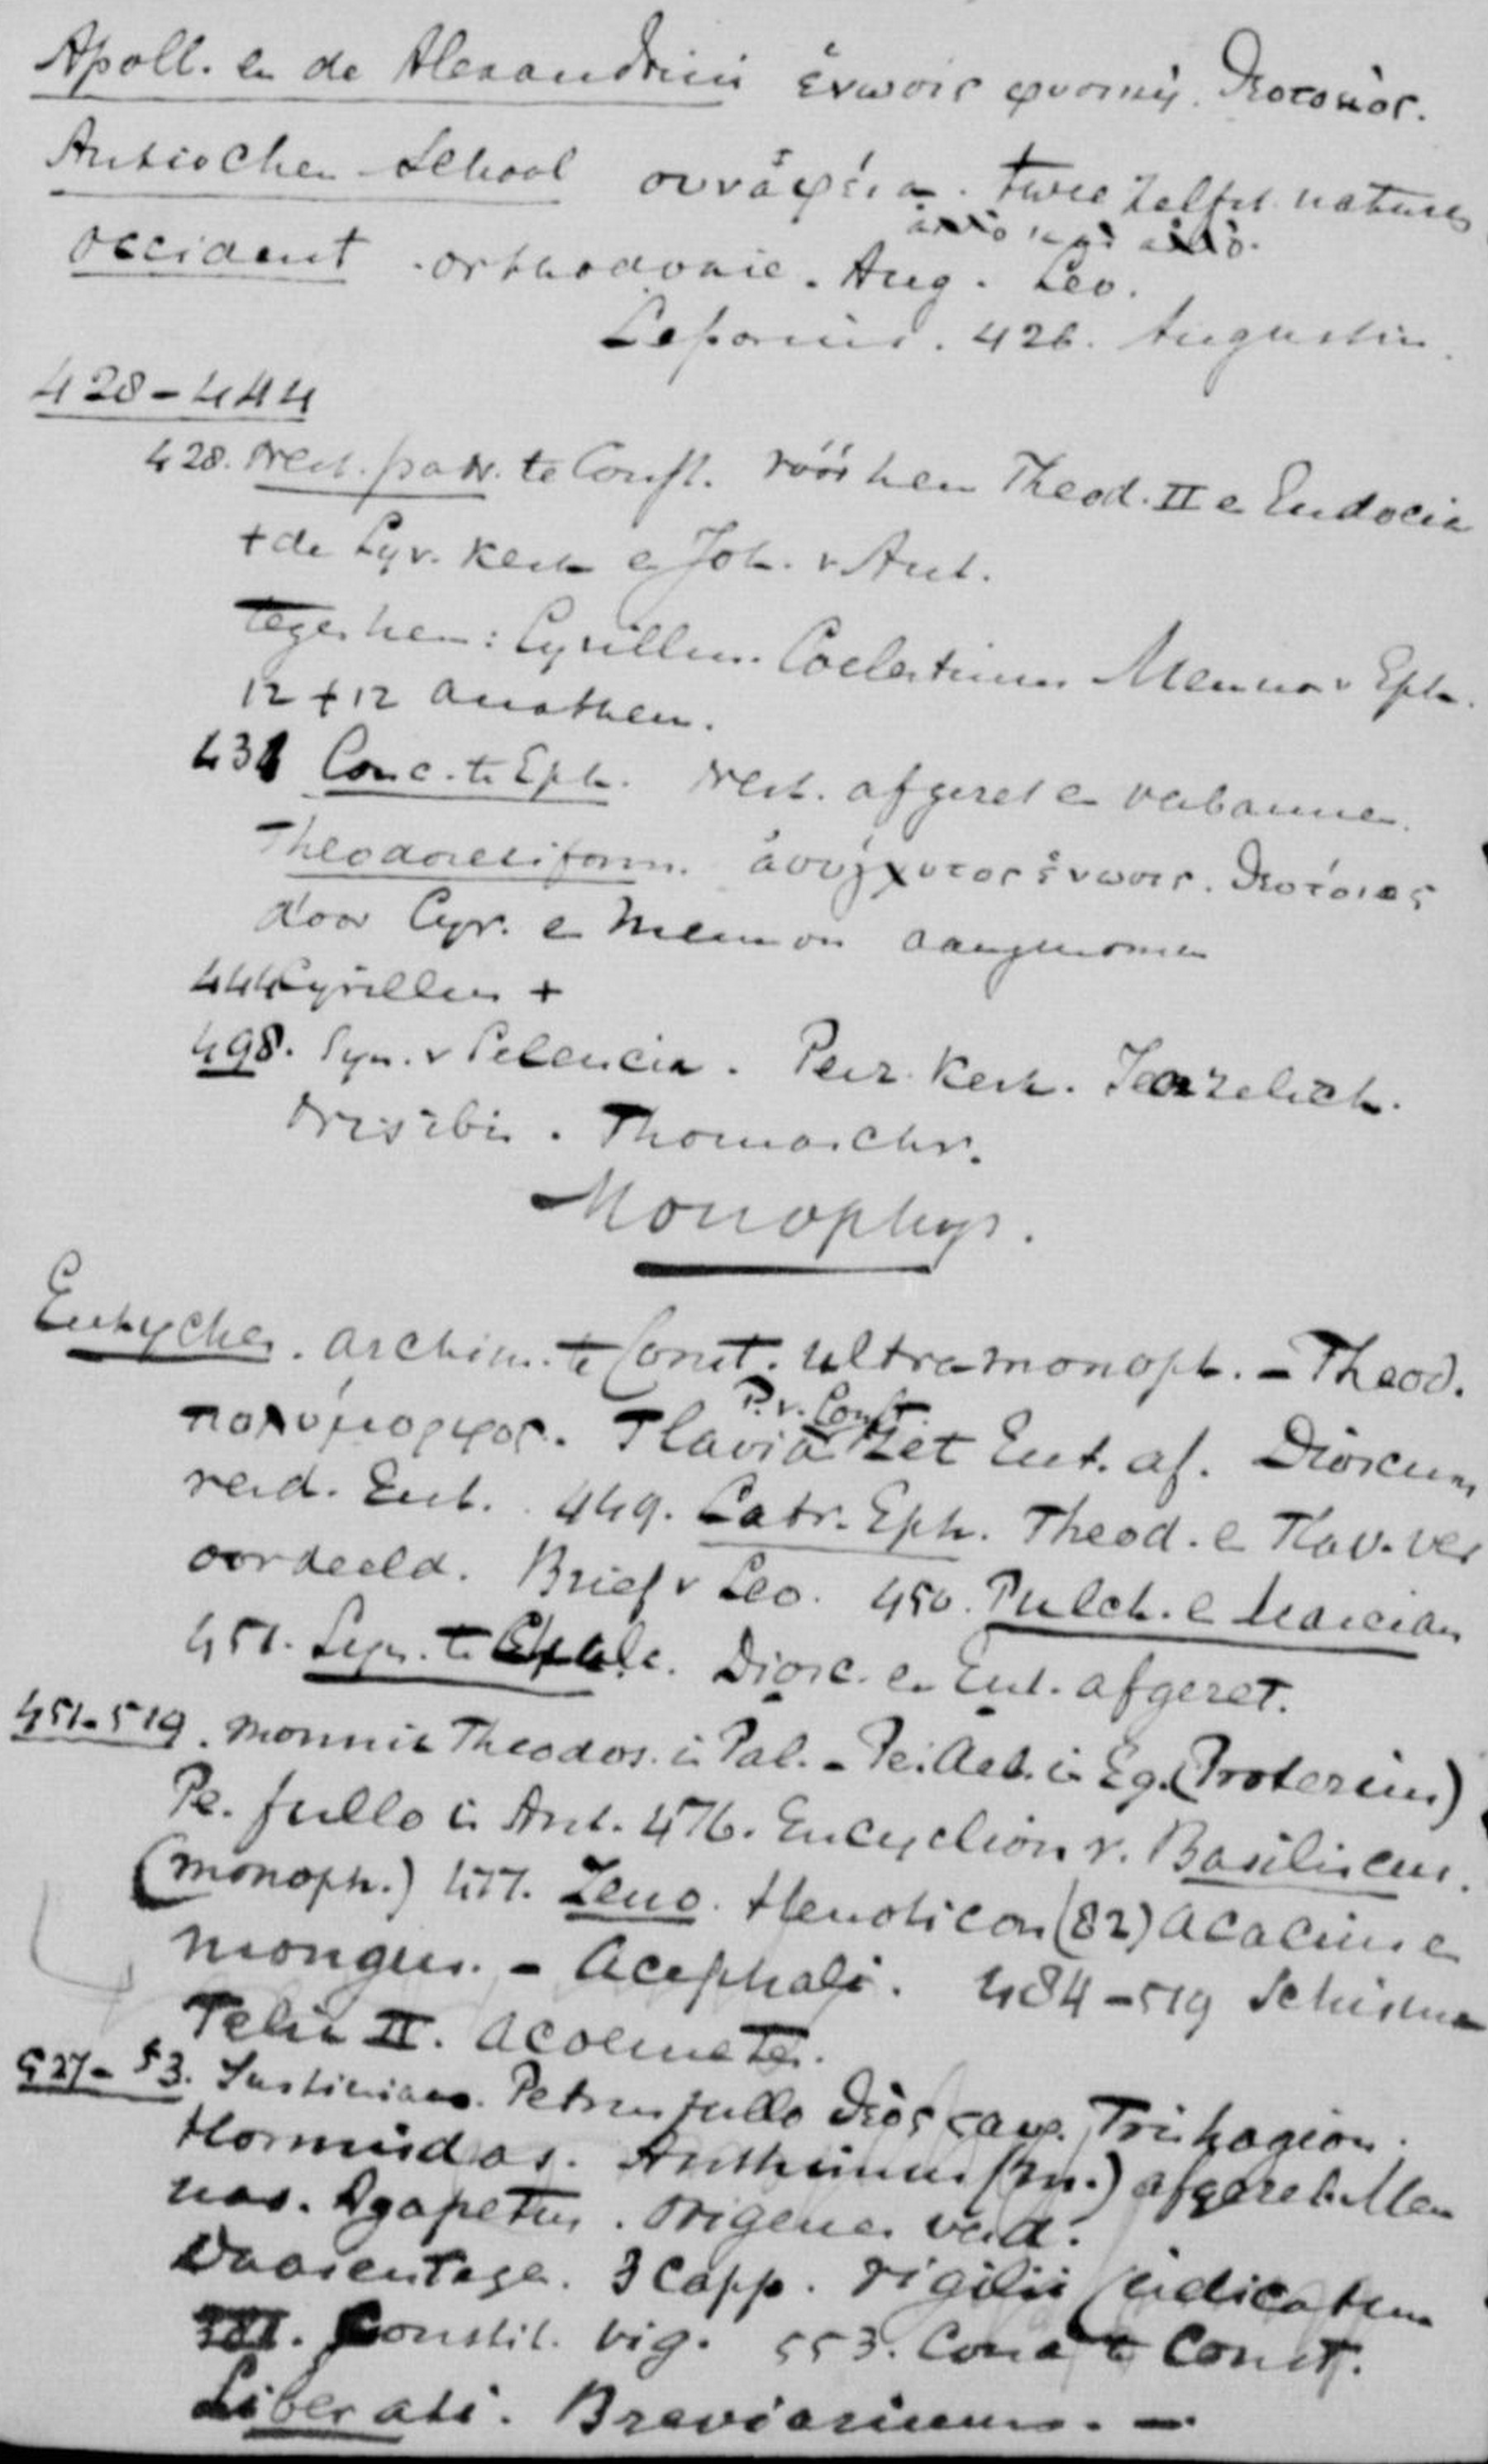 Apoll. en de Alexandrini ἕνωσις φυσική. Θεοτοκος.
Antiochen School συνάφεια. twee zelfst. natures
ἄλλο καὶ ἄλλο.
Occident. orthodoxie. Aug. Leo.
Leporius. 426. Augustin.
428-444
428. Nest. patr. te Const. vóór hem Theod. II e Eudocia
+ de Syr. Kerk e Joh. v Ant.
Tegen hem: Cyrillus. Coelestinus Memno v Eph.
12 + 12 anathem.
431 Conc. te Eph. Nest. afgezet en verbannen.
Theodoreti form. ἀσύγχυτος ἕνωσις. Θεοτόκος
door Cyr. e Memnon aangenomen
444 Cyrillus +
498. Syn. v Seleucia. Perz. Kerk.
Nisibis. Thomaschr.
Monophys.
Eutyches. archim. te Const. ultramonoph. - Theod.
πολύμορφος. Flavia zet Eut. af. Dioscurus
P. v. Const.
verd. Eut. 449. Latr. Eph. Theod. e Flav. ver
oordeeld. Brief v Leo. 450. Pulch. e Marcian
451. Syn. te Chalc. Diosc. en Eut. afgezet.
451-519. monnik Theodos. in Pal. - Pe. Ael. in Eg. (Proterius)
Pe. fullo in Ant. 476. Encyclion v. Basiliscus.
(monoph.) 477. Zeno. Henoticon (82) Acacius e
mongus. - Acephali. 484-519 Schisma
Felix II. Acoemeten.
527-53. Justinian. Petrus fullo Θεὸς σαυρ. Trishagion.
Hormisdas. Anthimus (m.) afgezet. Men
nas. Agapetus. Origenes verd.
3 Capp. Vigilii judicatum
Constit. Vig. 553. Conc te Const.
Liberati. Breviarium. -